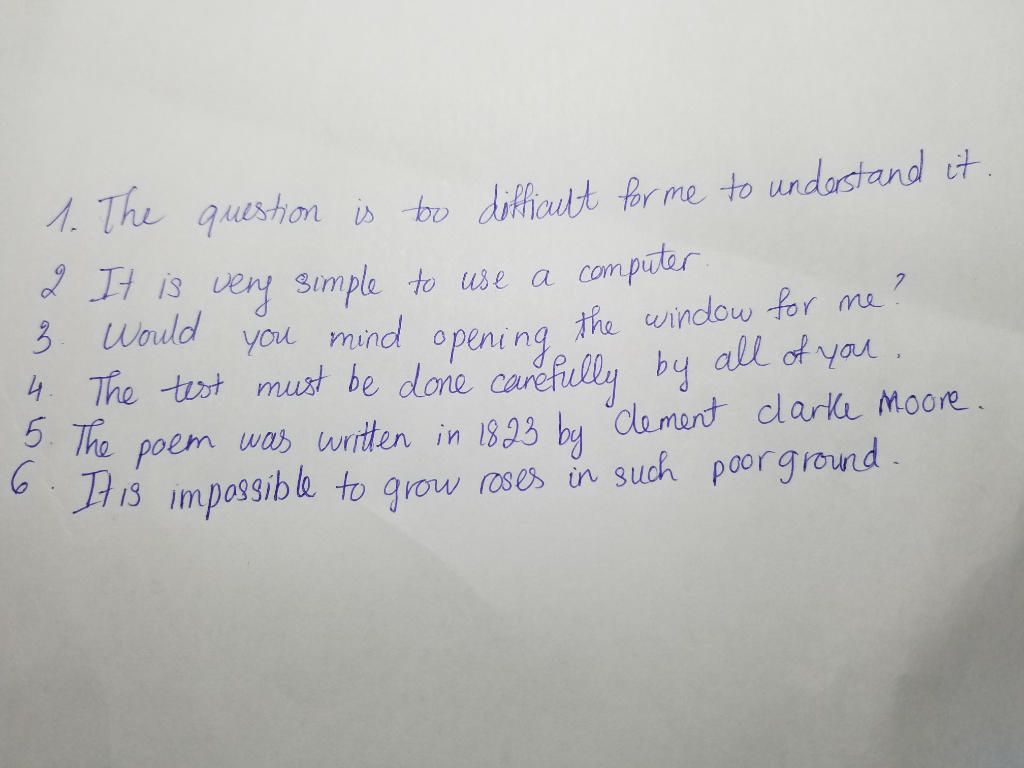 1. The question is too difficult for me to understand it.
2 It is very simple to use a computer.
3. Would you mind opening the window for me?
4. The test must be done carefully by all of you.
5. The poem was written in 1823 by Clement clarke Moore.
6. It is impossible to grow roses in such poor ground.